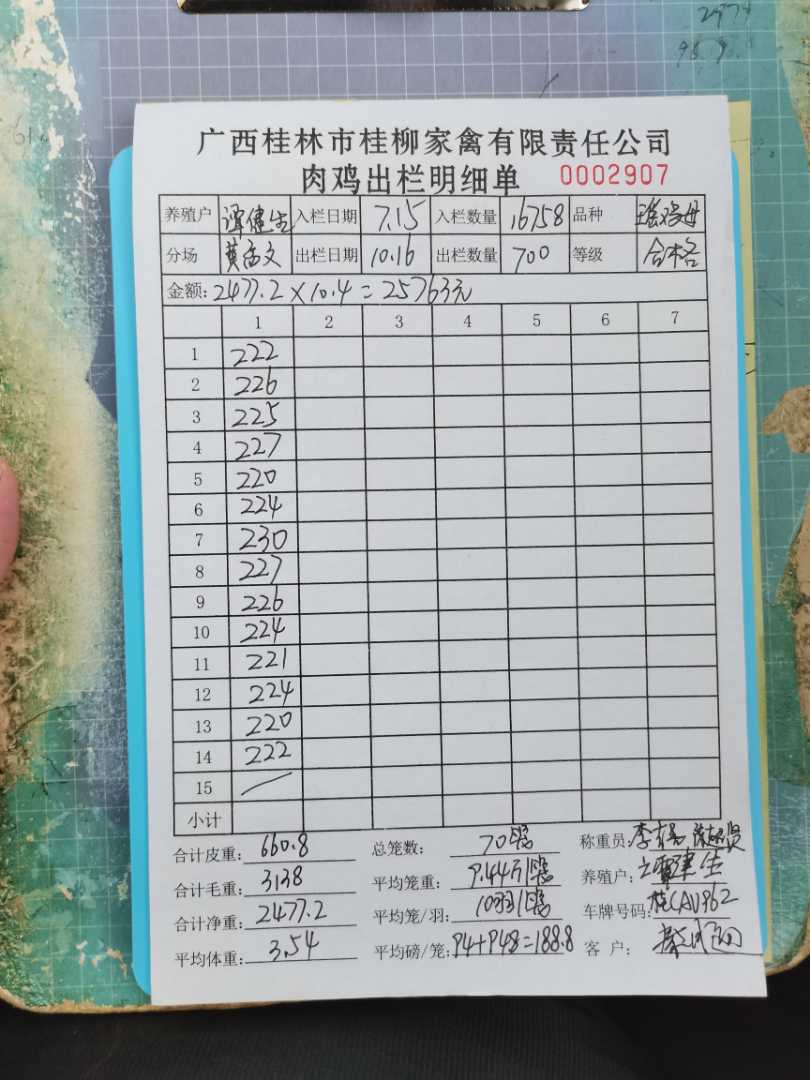 广西桂林市桂柳家禽有限责任公司
肉鸡出栏明细单 0002907
养殖户 谭健生 入栏日期 7.15 入栏数量 16758 品种
分场 黄高文 出栏日期 10.16 出栏数量 700 等级 合格
金额: 2477.2×10.4=25763元
1 2 3 4 5 6 7
1 222
2 226
3 225
4 227
5 220
6 224
7 230
8 227
9 226
10 224
11 221
12 224
13 220
14 222
15 /
小计
合计皮重: 660.8 总笼数: 70 称重员:
合计毛重: 3138 平均笼重: 9.44 养殖户: 谭健生
合计净重: 2477.2 平均笼/羽: 10 车牌号码: 桂CAV962
平均体重: 3.54 平均磅/笼: 94+94.8=188.8 客 户: